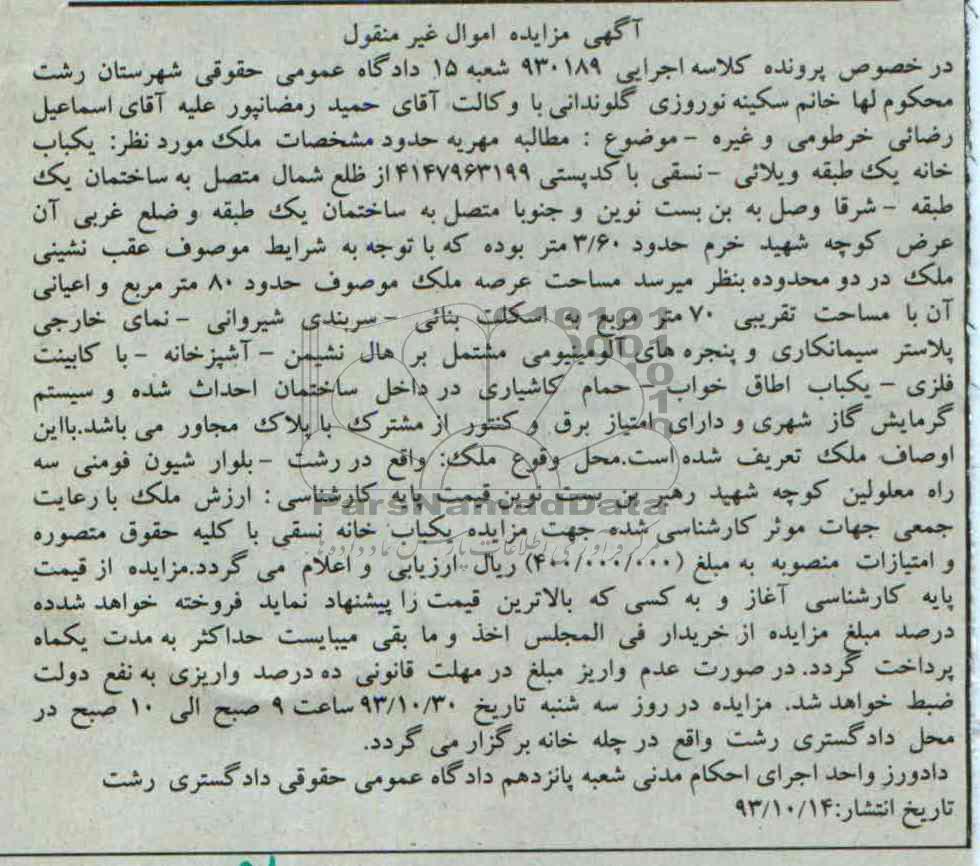 آگهی مزایده اموال غیر منقول
در خصوص پرونده کلاسه اجرایی ۹۳۰۱۸۹ شعبه ۱۵ دادگاه عمومی حقوقی شهرستان رشت
محکوم لها خانم سکینه نوروزی گلوندانی با وکالت آقای حمید رمضانپور علیه آقای اسماعیل
رضائی خرطومی و غیره - موضوع : مطالبه مهریه حدود مشخصات ملک مورد نظر: یکباب
خانه یک طبقه ویلائی - نسقی با کدپستی ۴۱۴۷۹۶۳۱۹۹ از ظلع شمال متصل به ساختمان یک
طبقه - شرقا وصل به بن بست نوین و جنوبا متصل به ساختمان یک طبقه و ضلع غربی آن
عرض کوچه شهید خرم حدود ۳/۶۰ متر بوده که با توجه به شرایط موصوف عقب نشینی
ملک در دو محدوده بنظر میرسد مساحت عرصه ملک موصوف حدود ۸۰ متر مربع و اعیانی
آن با مساحت تقریبی ۷۰ متر مربع به اسکلت بنائی - سربندی شیروانی - نمای خارجی
پلاستر سیمانکاری و پنجره های آلومینیومی مشتمل بر هال نشیمن - آشپزخانه - با کابینت
فلزی - یکباب اطاق خواب - حمام کاشیاری در داخل ساختمان احداث شده و سیستم
گرمایش گاز شهری و دارای امتیاز برق و کنتور از مشترک با پلاک مجاور می باشد.بااین
اوصاف ملک تعریف شده است.محل وقوع ملک: واقع در رشت - بلوار شیون فومنی سه
راه معلولین کوچه شهید رهبر بن بست نوین قیمت پایه کارشناسی : ارزش ملک با رعایت
جمعی جهات موثر کارشناسی شده جهت مزایده یکباب خانه نسقی با کلیه حقوق متصوره
و امتیازات منصوبه به مبلغ (۴۰۰/۰۰۰/۰۰۰) ریال ارزیابی و اعلام می گردد.مزایده از قیمت
پایه کارشناسی آغاز و به کسی که بالاترین قیمت را پیشنهاد نماید فروخته خواهد شدده
درصد مبلغ مزایده از خریدار فی المجلس اخذ و ما بقی میبایست حداکثر به مدت یکماه
پرداخت گردد. در صورت عدم واریز مبلغ در مهلت قانونی ده درصد واریزی به نفع دولت
ضبط خواهد شد. مزایده در روز سه شنبه تاریخ ۹۳/۱۰/۳۰ ساعت ۹ صبح الی ۱۰ صبح در
محل دادگستری رشت واقع در چله خانه برگزار می گردد.
دادورز واحد اجرای احکام مدنی شعبه پانزدهم دادگاه عمومی حقوقی دادگستری رشت
تاریخ انتشار:۹۳/۱۰/۱۴
ParsNamadData